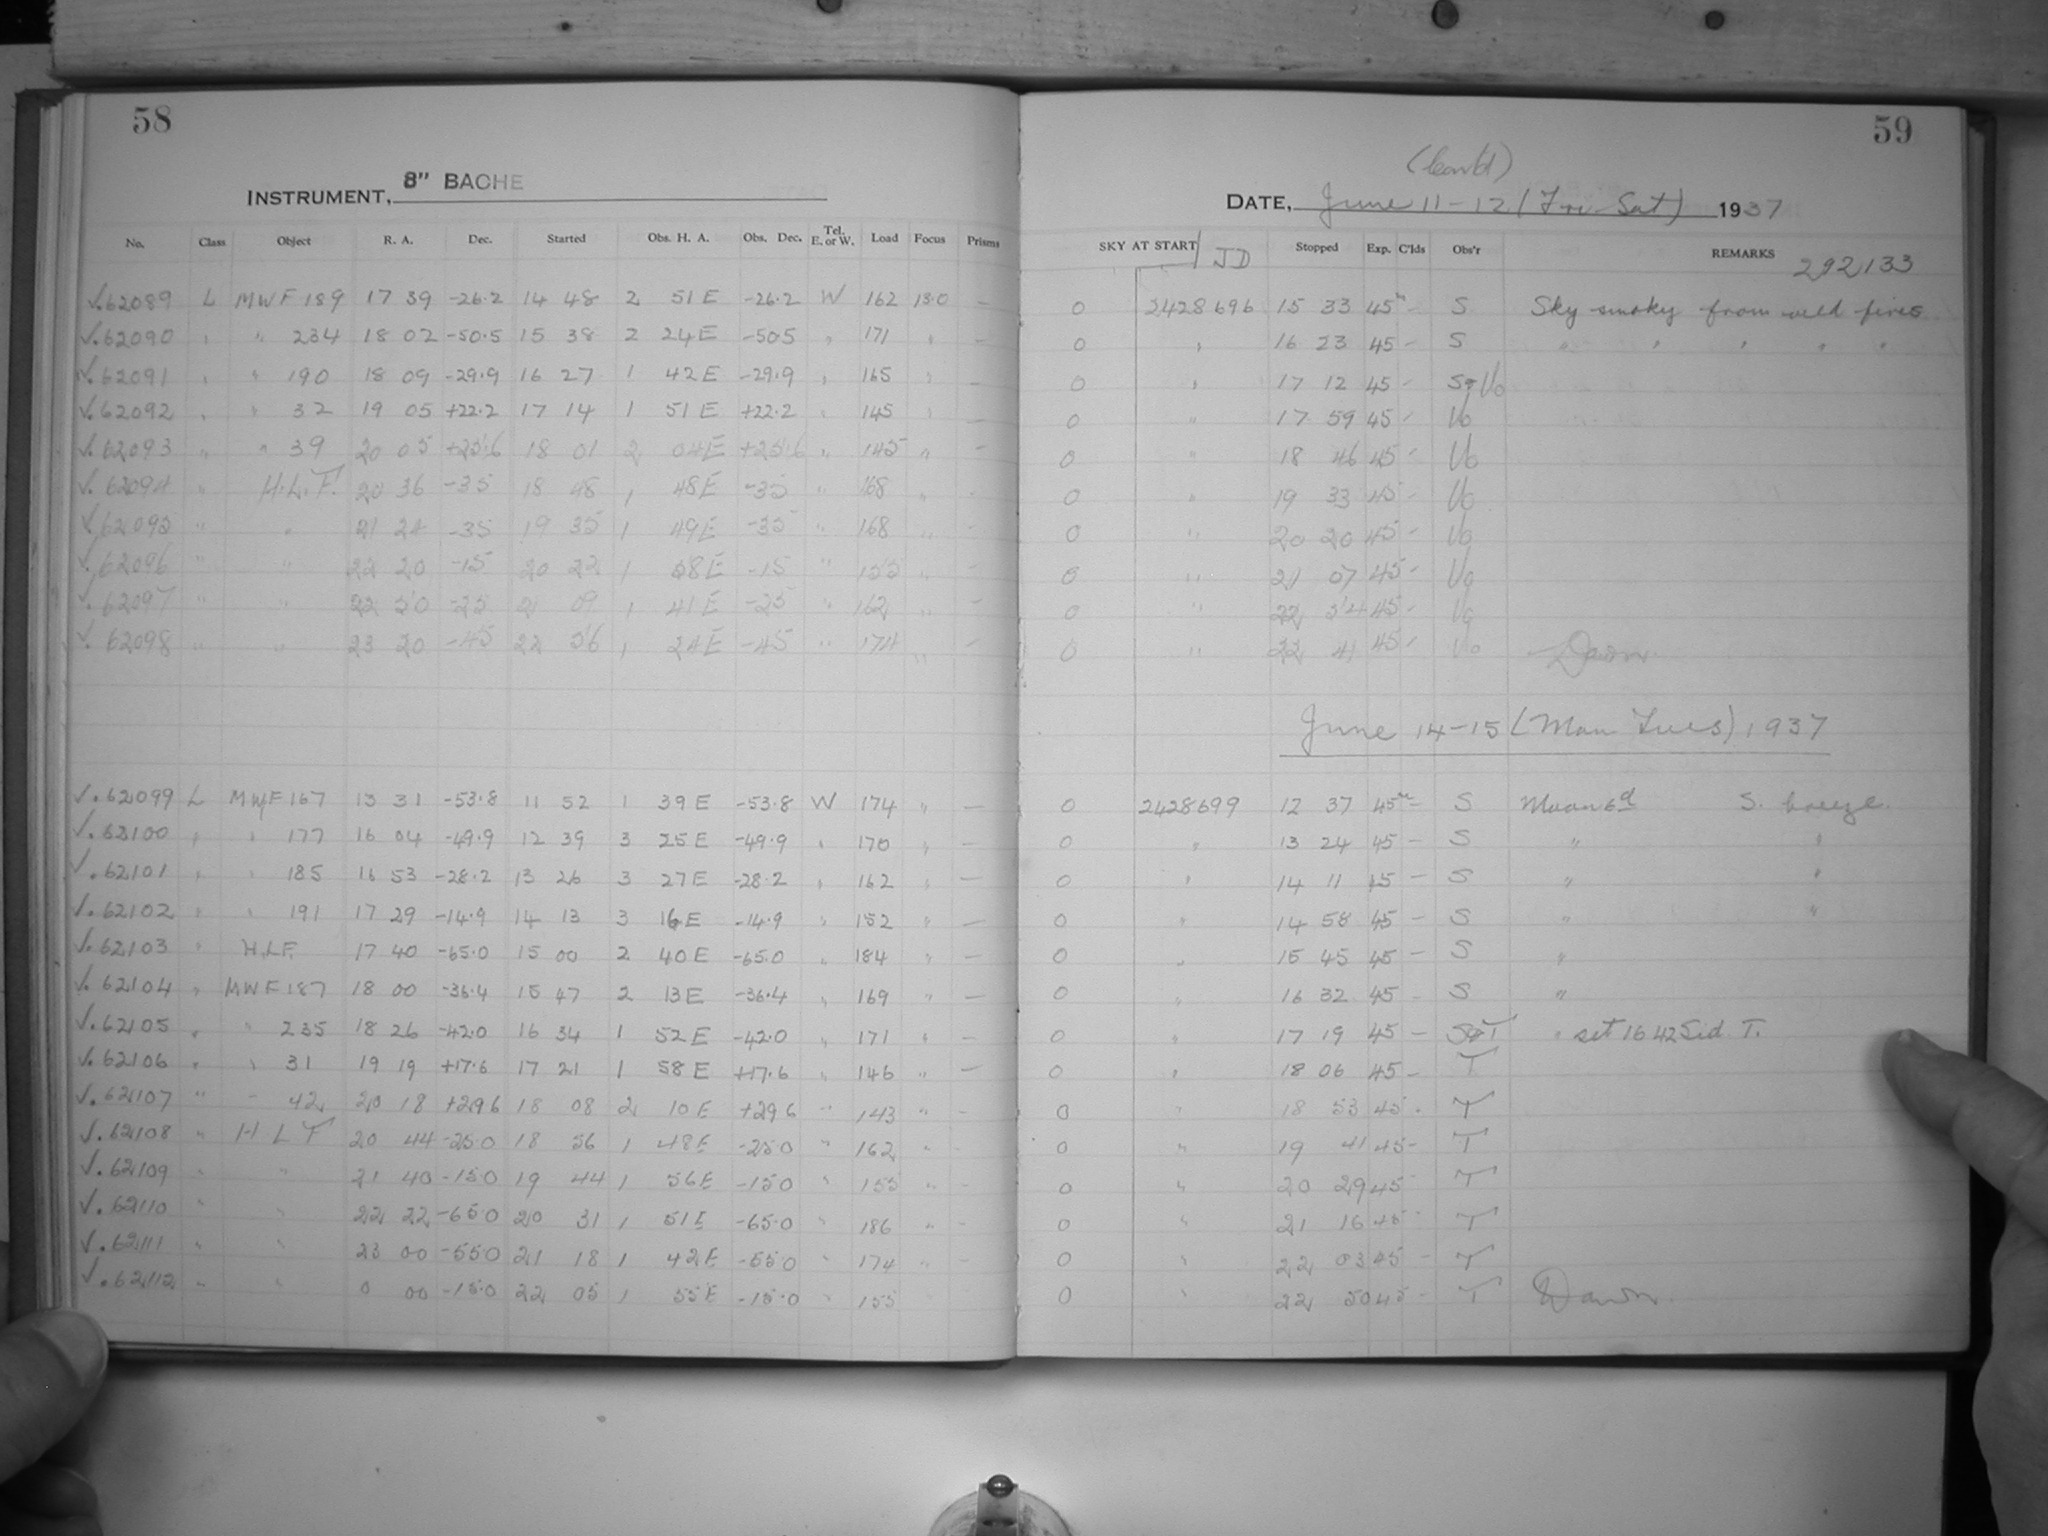 58
INSTRUMENT, 8" BACHE
No. Class Object R. A. Dec. Started Obs. H. A. Obs. Dec. Tel. E. or W. Load Focus Prisms
√.62089 L MWF 189 17 39 -26.2 14 48 2 51 E -26.2 W 162 13.0 —
√.62090 " " 234 18 02 -50.5 15 38 2 24 E -50.5 " 171 " —
√.62091 " " 190 18 09 -29.9 16 27 1 42 E -29.9 " 165 " —
√.62092 " " 32 19 05 +22.2 17 14 1 51 E +22.2 " 145 " —
√.62093 " " 39 20 05 +25.6 18 01 2 04 E +25.6 " 145 " —
√.62094 " H.L.F. 20 36 -35 18 48 1 48 E -35 " 168 " —
√.62095 " " 21 24 -35 19 35 1 49 E -35 " 168 " —
√.62096 " " 22 20 -15 20 22 1 58 E -15 " 155 " —
√.62097 " " 22 50 -25 21 09 1 41 E -25 " 162 " —
√.62098 " " 23 20 -45 22 56 1 24 E -45 " 174 " —
√.62099 L MWF 167 13 31 -53.8 11 52 1 39 E -53.8 W 174 " —
√.62100 " " 177 16 04 -49.9 12 39 3 25 E -49.9 " 170 " —
√.62101 " " 185 16 53 -28.2 13 26 3 27 E -28.2 " 162 " —
√.62102 " " 191 17 29 -14.9 14 13 3 16 E -14.9 " 152 " —
√.62103 " H.L.F. 17 40 -65.0 15 00 2 40 E -65.0 " 184 " —
√.62104 " MWF 187 18 00 -36.4 15 47 2 13 E -36.4 " 169 " —
√.62105 " " 235 18 26 -42.0 16 34 1 52 E -42.0 " 171 " —
√.62106 " " 31 19 19 +17.6 17 21 1 58 E +17.6 " 146 " —
√.62107 " " 42 20 18 +29.6 18 08 2 10 E +29.6 " 143 " —
√.62108 " H L F 20 44 -25.0 18 56 1 48 E -25.0 " 162 " —
√.62109 " " 21 40 -15.0 19 44 1 56 E -15.0 " 155 " —
√.62110 " " 22 22 -65.0 20 31 1 51 E -65.0 " 186 " —
√.62111 " " 23 00 -55.0 21 18 1 42 E -55.0 " 174 " —
√.62112 " " 0 00 -15.0 22 05 1 55 E -15.0 " 155
59
(Cont'd)
DATE, June 11-12 (Fri-Sat) 1937
SKY AT START JD Stopped Exp. C'lds Obs'r REMARKS
292133
0 2428696 15 33 45m — S Sky smoky from veld fires
0 " 16 23 45 — S " " " " "
0 " 17 12 45 — S+Vo
0 " 17 59 45 — Vo
0 " 18 46 45 — Vo
0 " 19 33 45 — Vo
0 " 20 20 45 — Vo
0 " 21 07 45 — Vo
0 " 22 54 45 — Vo
0 " 22 41 45 — Vo Dawn.
June 14-15 (Mon Tues) 1937
0 2428699 12 37 45m — S Moon 6d S. breeze.
0 " 13 24 45 — S " "
0 " 14 11 45 — S " "
0 " 14 58 45 — S " "
0 " 15 45 45 — S "
0 " 16 32 45 — S "
0 " 17 19 45 — S+T " set 16 42 Sid. T.
0 " 18 06 45 — T
0 " 18 53 45 — T
0 " 19 41 45 — T
0 " 20 29 45 — T
0 " 21 16 45 — T
0 " 22 03 45 — T
0 " 22 50 45 — T Dawn.